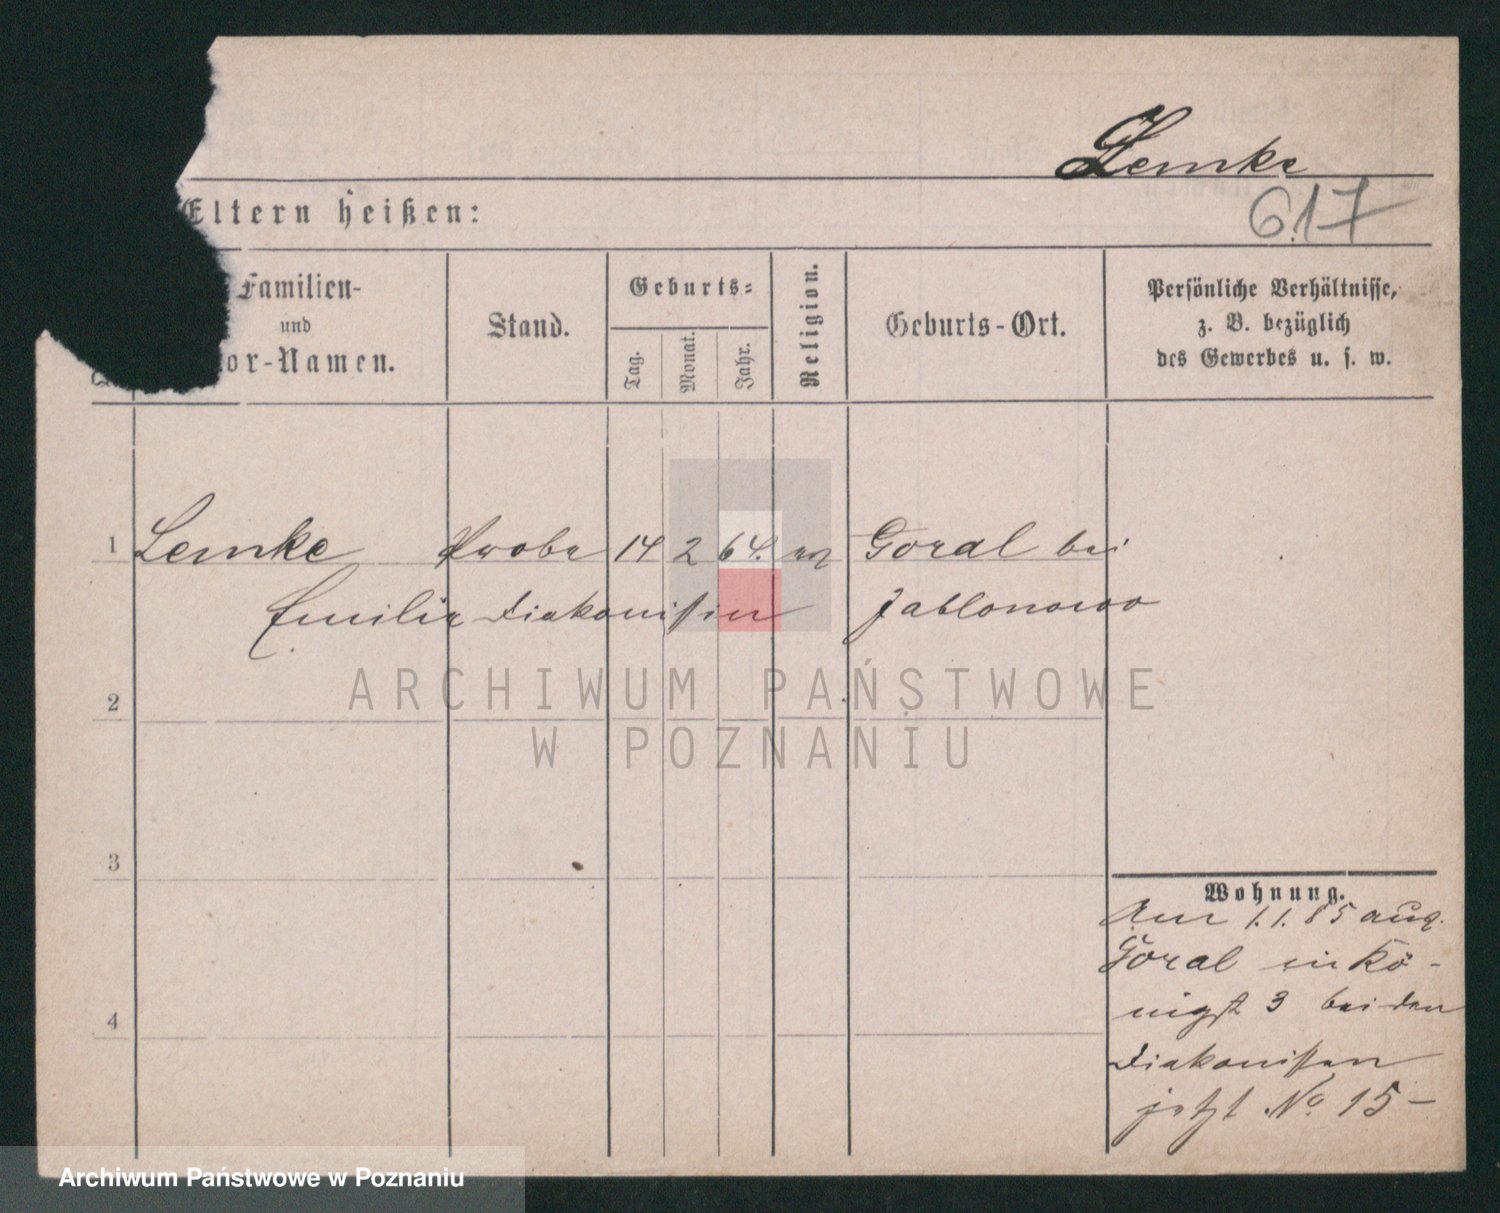 Lemke
617
Eltern heißen:
Familien-
und
or-Namen.
Stand.
Geburts-
Tag.
Monat.
Jahr.
Religion.
Geburts-Ort.
Persönliche Verhältnisse,
z. B. bezüglich
des Gewerbes u. s. w.
1 Lemke Probe 14 2 64. Goral bei
Emilie Diakonissin Jablonowo
2
3
4
Wohnung.
Am 1.1.85 aus
Goral in Kö-
nigst 3 bei den
Diakonissen
jetzt No 15-
ARCHIWUM PAŃSTWOWE
W POZNANIU
Archiwum Państwowe w Poznaniu